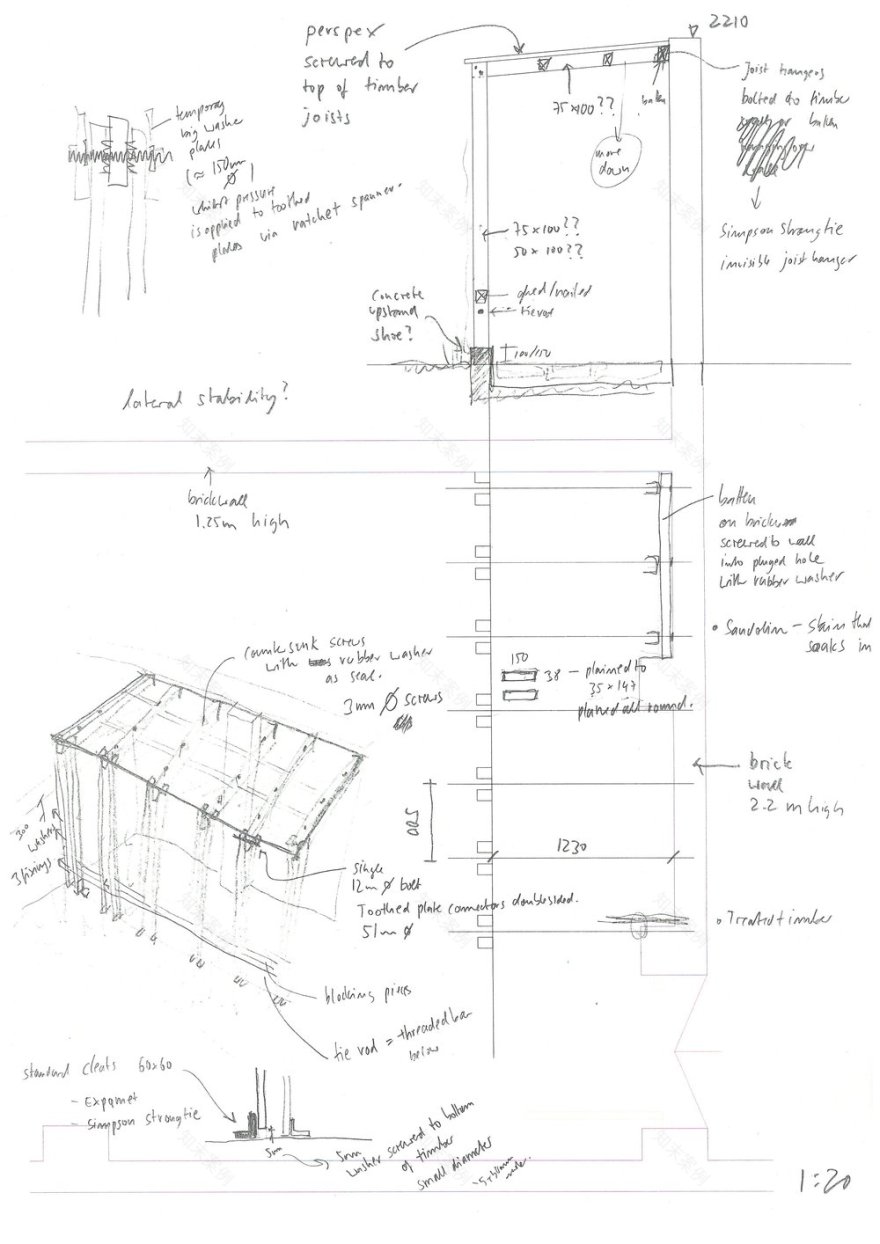 perspex
screwed to
top of timber
joists
2210
joist hangers
bolted to timber
or batten
Simpson Strongtie
invisible joist hanger
75x100??
batten
move
down
temporary
big washer
plates
(≈ 150mm
Ø)
whilst pressure
is applied to toothed
plates via ratchet spanner.
75x100??
50x100??
glued/nailed
tie rod
Concrete
upstand
shoe?
100/150
lateral stability?
brickwall
1.25m high
batten
on brick
screwed to wall
into pluged hole
with rubber washer
• Sandolin - Stain that
soaks in
countersunk screws
with rubber washer
as seal.
3mm Ø screws
150
38 - plained to
35 x 147
planed all round.
brick
wall
2.2 m high
500
1230
300
washers
3 fixings
single
12m Ø bolt
Toothed plate connectors doublesided.
51m Ø
• Treated timber
blocking pieces
tie rod = threaded bar
below
standard cleats 60x60
- Expamet
- Simpson strongtie
5mm
5mm
washer screwed to bottom
of timber
small diameter
1:20
知末案例